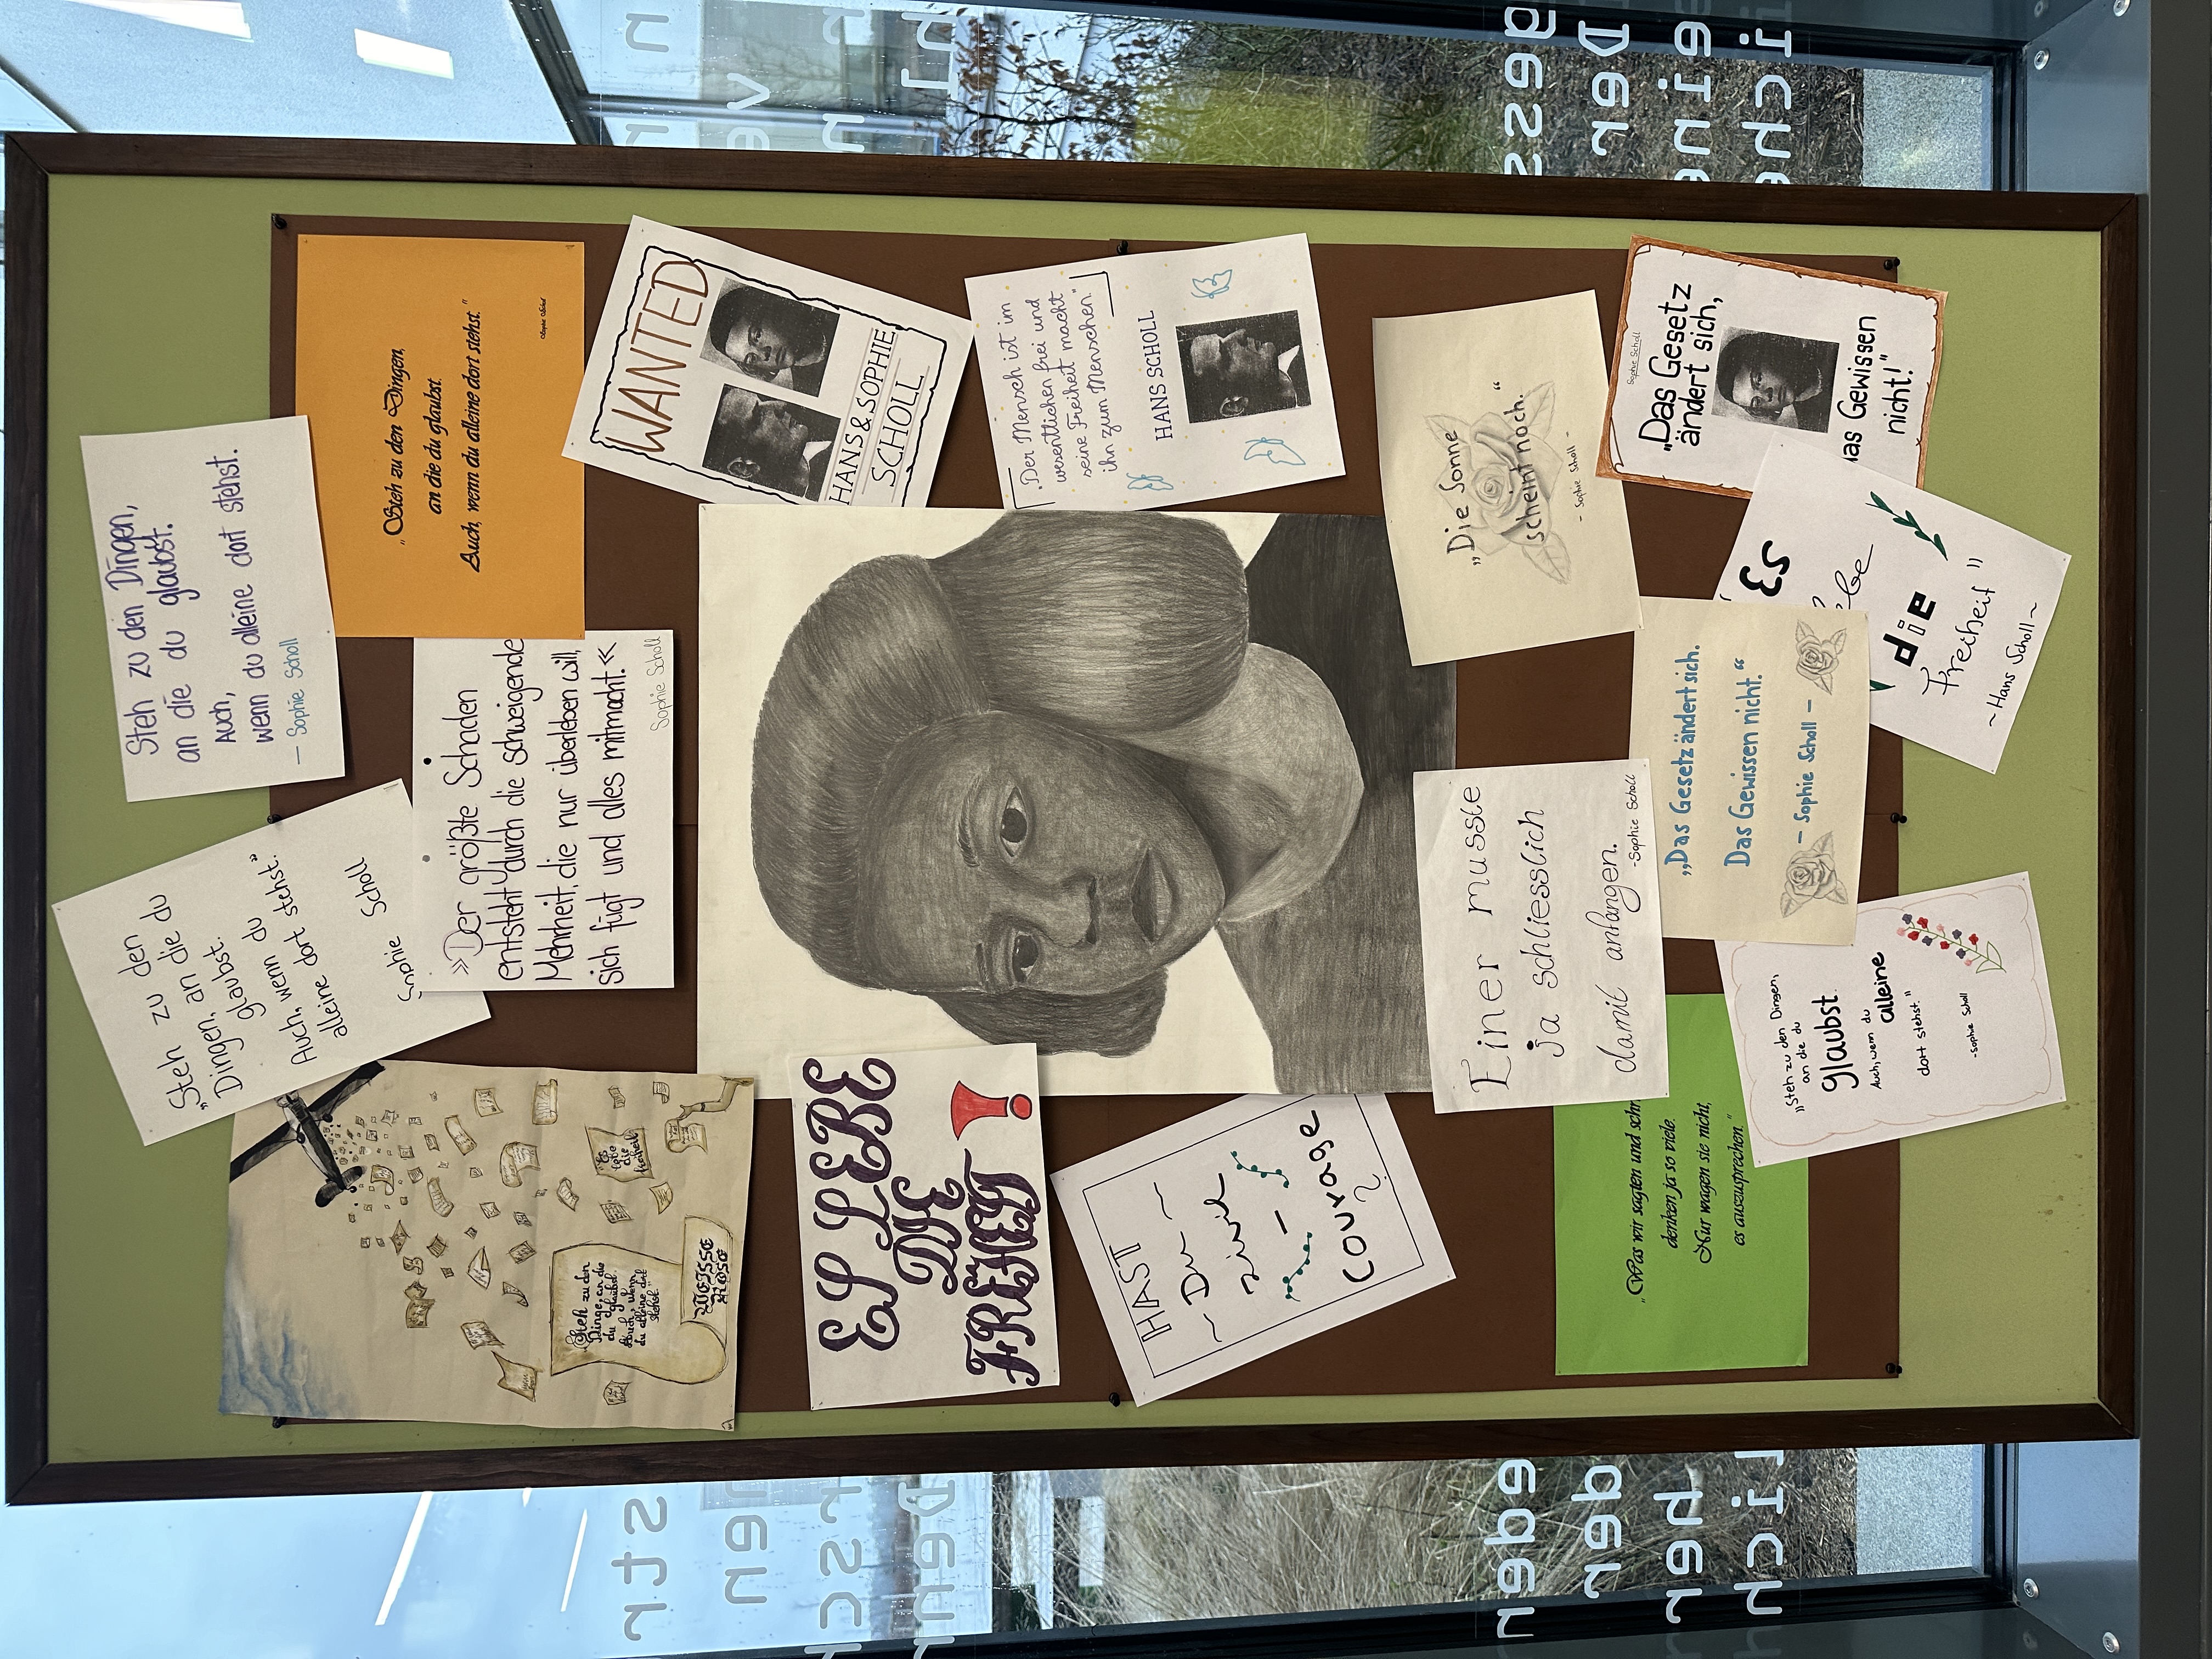 „Steh zu den
Dingen, an die du
glaubst.
Auch, wenn du
alleine dort stehst.“
Sophie Scholl
Steh zu den Dingen,
an die du glaubst.
Auch,
wenn du alleine dort stehst.
– Sophie Scholl
„Steh zu den Dingen,
an die du glaubst.
Auch, wenn du alleine dort stehst.“
Sophie Scholl
»Der größte Schaden
entsteht durch die schweigende
Mehrheit, die nur überleben will,
sich fügt und alles mitmacht.«
Sophie Scholl
Steh zu den
Dinge, an die
du glaubst.
Auch, wenn
du alleine dort
stehst.“
WEISSE
ROSE
Es
lebe
die
freiheit
WANTED
HANS & SOPHIE
SCHOLL
„Der Mensch ist im
wesentlichen frei und
seine Freiheit macht
ihn zum Menschen.“
HANS SCHOLL
ES LEBE
DIE
FREIHEIT!
HAST
~ Du ~
zivil
–
courage
?
„Die Sonne
scheint noch.“
- Sophie Scholl -
Einer musste
ja schliesslich
damit anfangen.
-Sophie Scholl
Sophie Scholl
„Das Gesetz
ändert sich,
das Gewissen
nicht!“
„Das Gesetz ändert sich.
Das Gewissen nicht.“
– Sophie Scholl –
Es
die
Freiheit"
~ Hans Scholl ~
„Was wir sagten und
denken ja so viele.
Nur wagen sie nicht,
es auszusprechen.“
„Steh zu den Dingen,
an die du
glaubst.
Auch, wenn du
alleine
dort stehst."
-Sophie Scholl